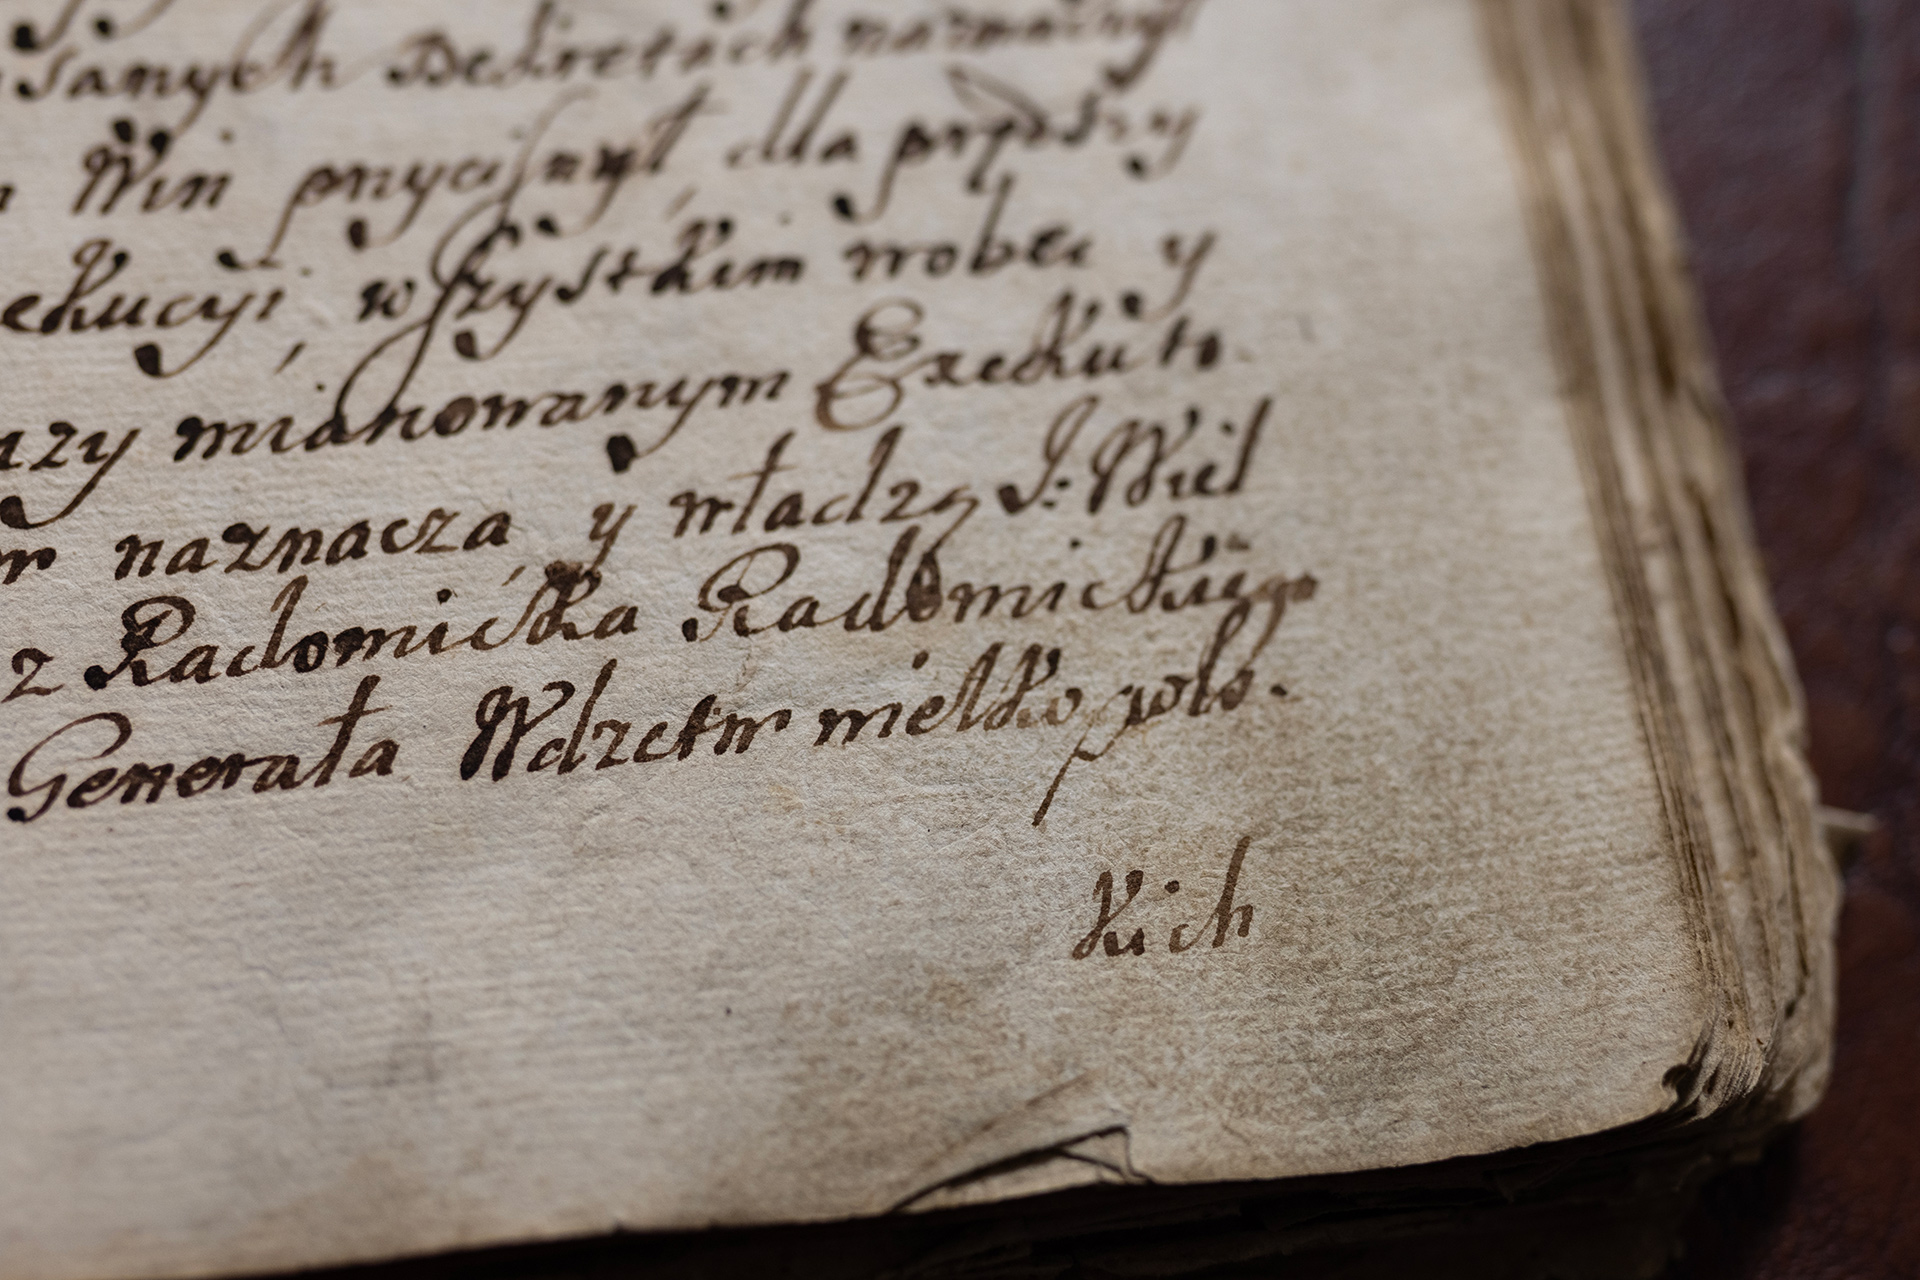 sanych Dekretach naznaczył
Win przycisnął, dla prędszy
ekucyi, wszystkim wobec y
azy mianowanym Exekuto
w naznacza, y władzą J: Wiel
z Radomicka Radomickiego
Generała Wdzctw wielko pols.
kich